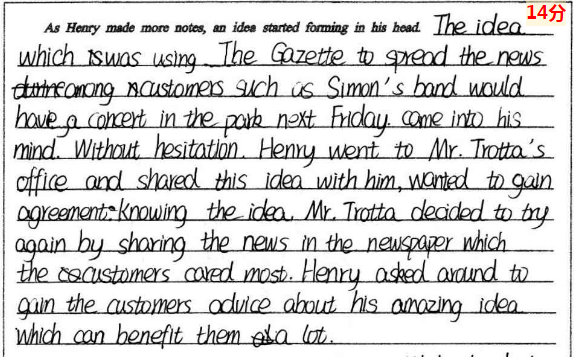 14分
As Henry made more notes, an idea started forming in his head. The idea
which was using The Gazette to spread the news
among customers such as Simon's band would
have a concert in the park next Friday. come into his
mind. Without hesitation. Henry went to Mr. Trotta's
office and shared this idea with him, wanted to gain
agreement. Knowing the idea. Mr. Trotta decided to try
again by sharing the news in the newspaper which
the customers cared most. Henry asked around to
gain the customers advice about his amazing idea
which can benefit them a lot.